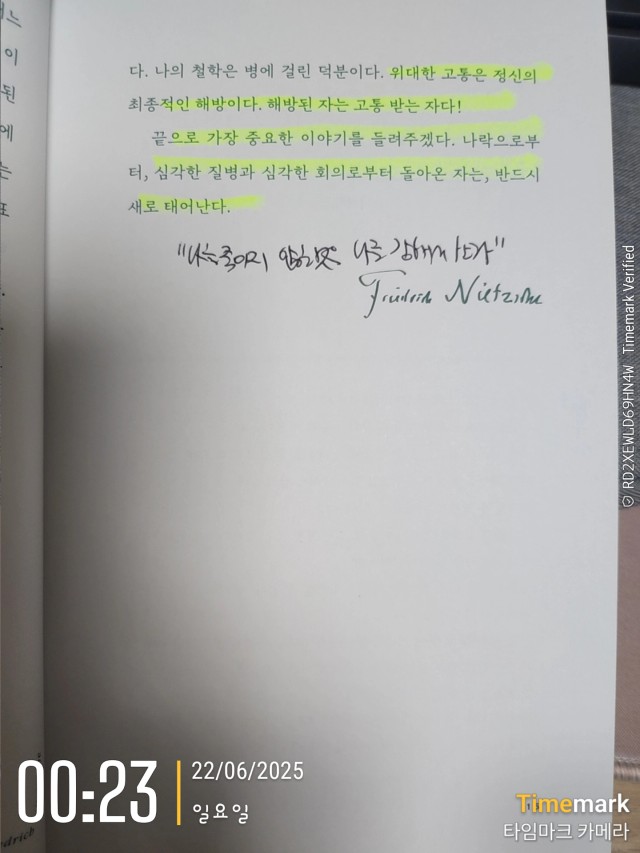 다. 나의 철학은 병에 걸린 덕분이다. 위대한 고통은 정신의
최종적인 해방이다. 해방된 자는 고통 받는 자다!
끝으로 가장 중요한 이야기를 들려주겠다. 나락으로부
터, 심각한 질병과 심각한 회의로부터 돌아온 자는, 반드시
새로 태어난다.
"나를 죽이지 않는 것은 나를
Friedrich Nietzsche
이
된
에
는
표
RD2XEWLD69HN4W Timemark Verified
00:23
22/06/2025
일요일
Timemark
타임마크 카메라